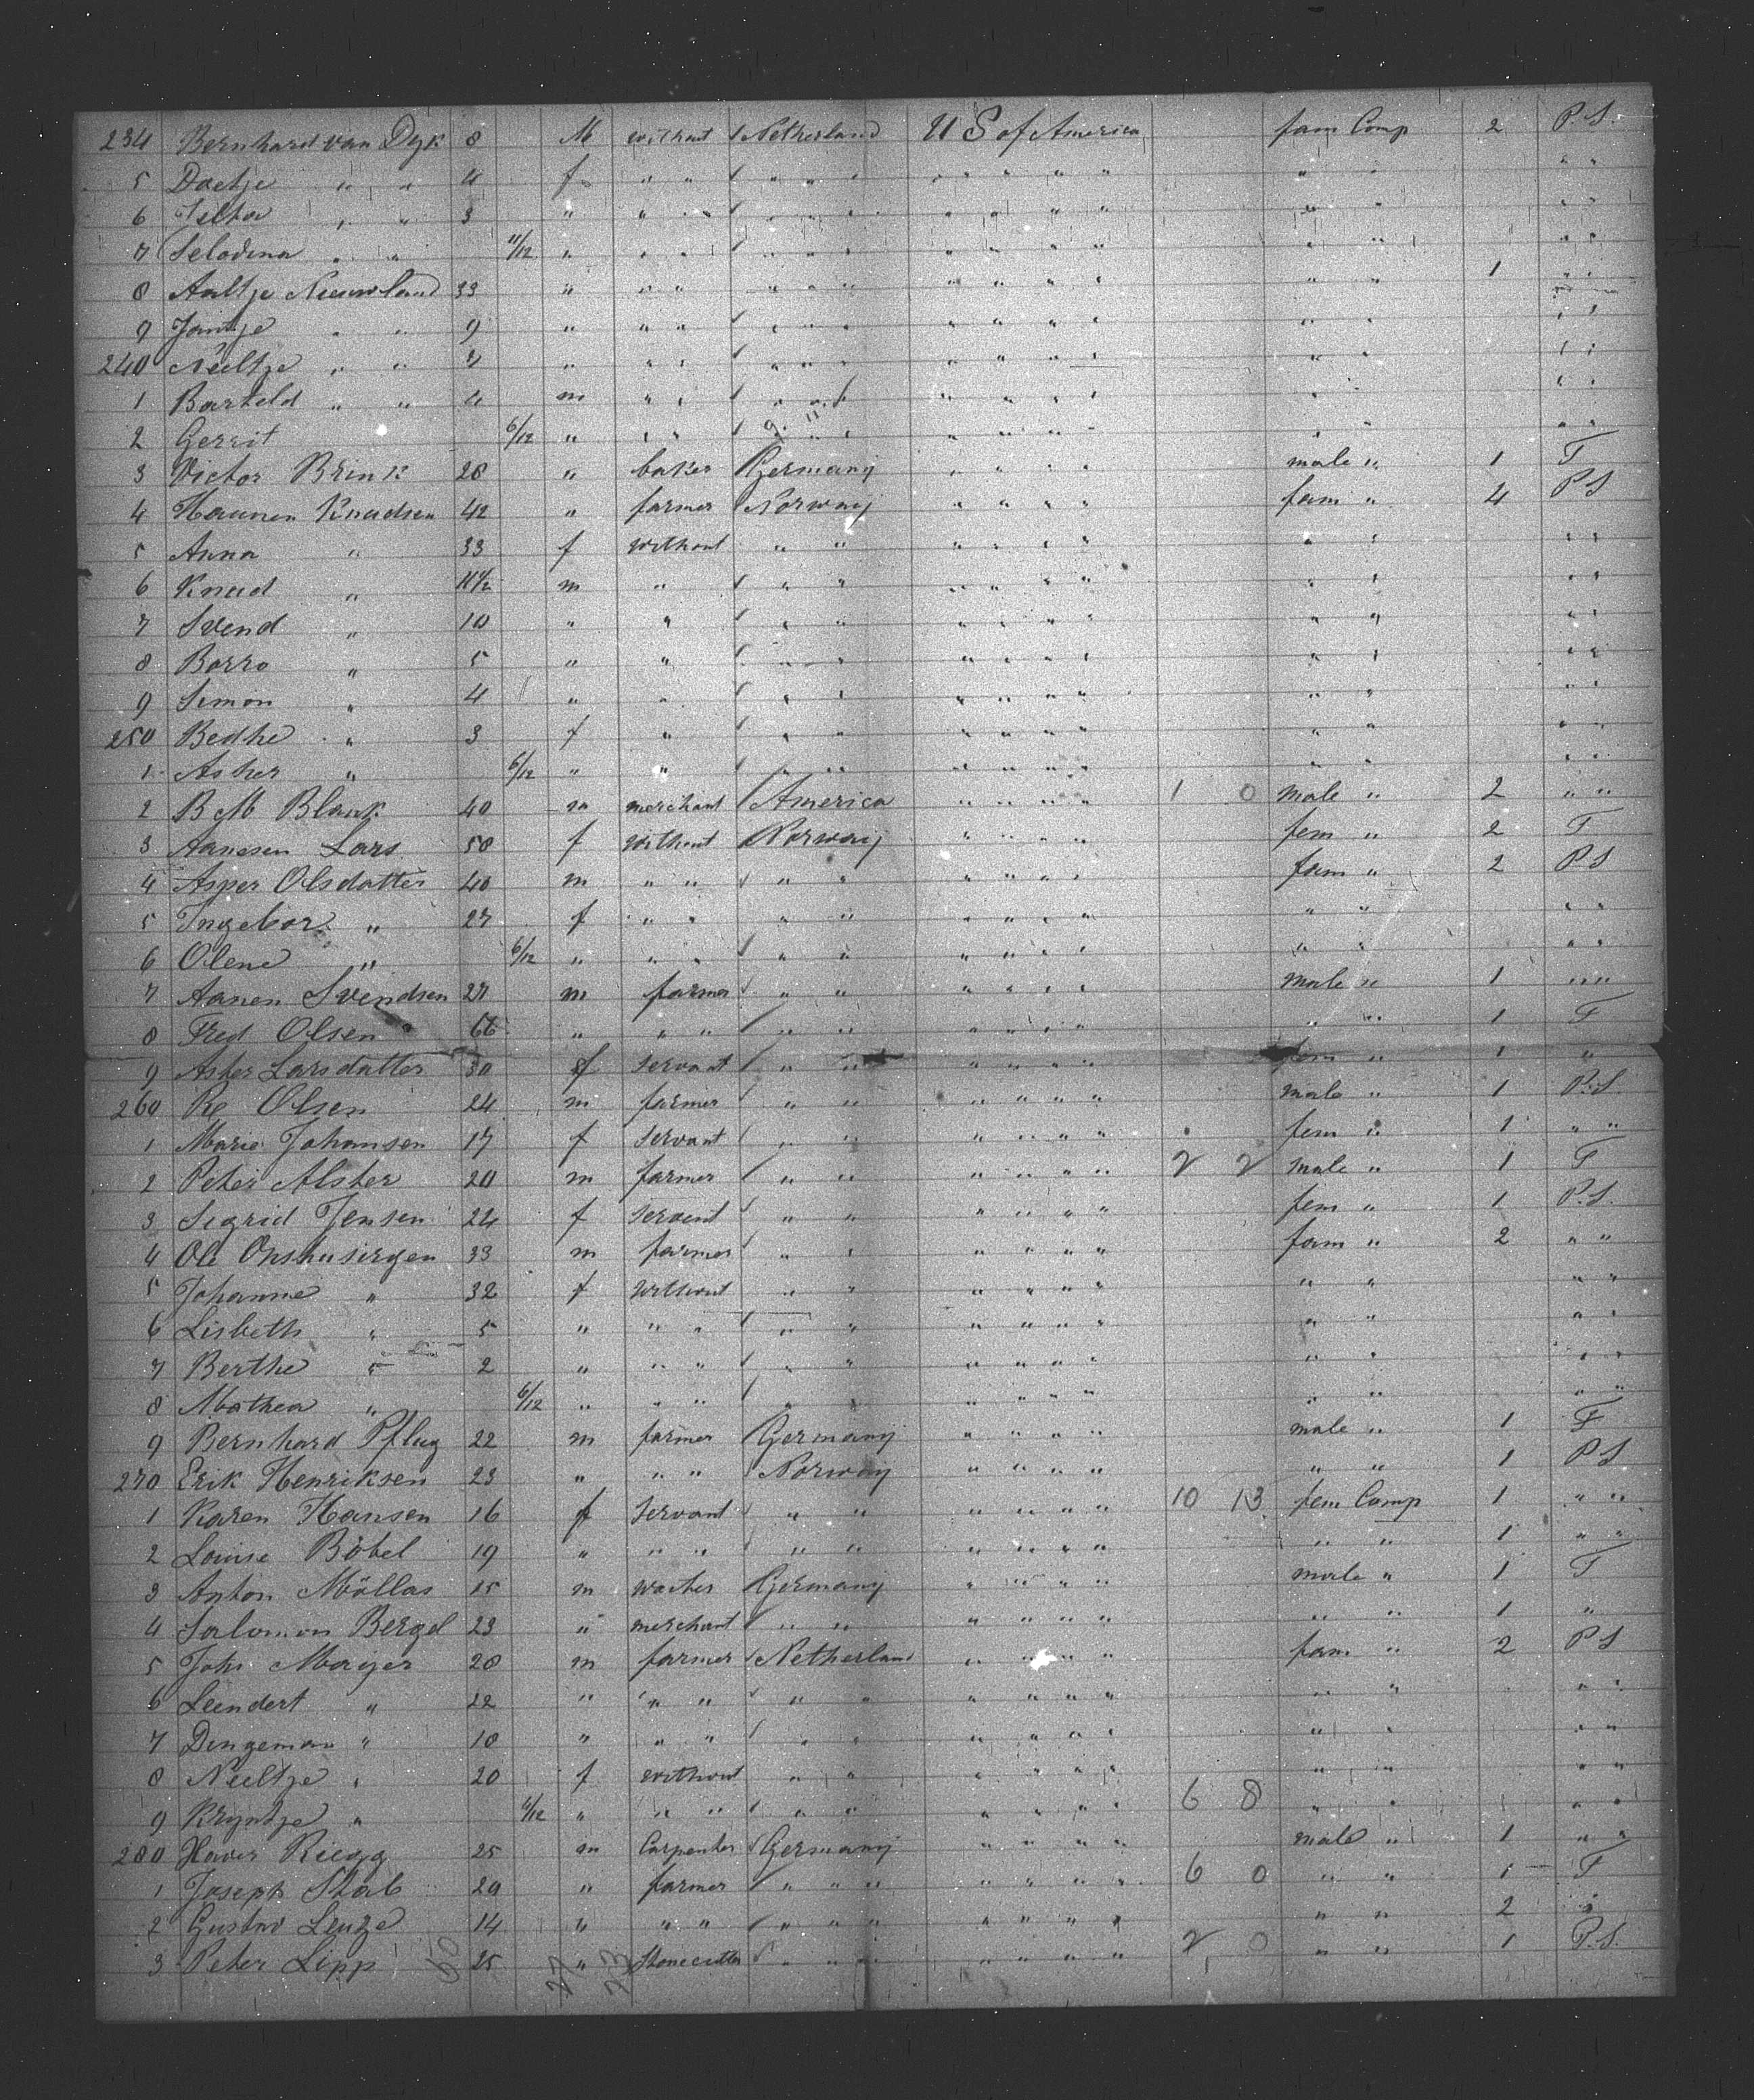 234 Bernhard van Dyk 8 M without Netherland U S of America fam Comp 2 P.S.
5 Doetje " " 4 f " " " " " " " " " " " "
6 Jeltor " " 3 " " " " " " " " " " " " "
7 Selodina " " 11/12 " " " " " " " " " " " "
8 Aaltje Nieuwland 33 " " " " " " " " " " " 1 " "
9 Jantje " " 9 " " " " " " " " " " " " "
240 Neeltje " " 7 " " " " " " " " " " " " "
1 Barteld " " 4 m " " " " " " " " " " "
2 Gerrit 6/12 " " " " " " " " " " " " "
3 Victor Brink 28 " baker Germany " " " " male " 1 F
4 Haunen Knudsen 42 " farmer Norway " " " " fam " 4 P S
5 Anna " 33 f without " " " " " " " " " "
6 Knud " 11 1/2 m " " " " " " " " " " "
7 Svend " 10 " " " " " " " " " "
8 Borro " 5 " " " " " " " " " " " "
9 Simon " 4 " " " " " " " " " " " "
250 Bedhe " 3 f " " " " " " " " " " "
1 Asher " 6/12 " " " " " " " " " " " "
2 B M Blank 40 m merchant America " " " " 1 0 male " 2 " "
3 Aanesen Lars 58 f without Norway " " " " fem " 2 F
4 Asper Olsdatter 40 m " " " " " " " " fam " 2 P S
5 Ingebor " 27 f " " " " " " " " " " " "
6 Olene " 6/12 " " " " " " " " " " " " "
7 Aanen Svendsen 27 m farmer " " " " " " male " 1 " "
8 Fred Olsen 66 " " " " " " " " " " " 1 F
9 Asher Larsdatter 30 f servant " " " " " " fem " 1 "
260 Re Olsen 24 m farmer " " " " " " male " 1 P.S.
1 Marie Johansen 17 f servant " " " " " " fem " 1 " "
2 Peter Alster 20 m farmer " " " " " " 2 2 male " 1 F
3 Sigrid Jensen 24 f servent " " " " " " fem " 1 P.S.
4 Ole Onshusirgen 33 m farmer " " " " " " fam " 2 " "
5 Johanne " 32 f without " " " " " " " " " "
6 Lisbeth " 5 " " " " " " " " " " " " "
7 Berthe " 2 " " " " " " " " " " " " "
8 Mathea " 6/12 " " " " " " " " " " " "
9 Bernhard Pflug 22 m farmer Germany " " " " male " 1 F
270 Erik Henriksen 23 " " " Norway " " " " " " 1 P S
1 Karen Hansen 16 f servant " " " " " " 10 13 fem Comp 1 " "
2 Louise Böbel 19 " " " " " " " " " " " 1 " "
3 Anton Möllas 15 m waiter Germany " " " " male " 1 F
4 Salomon Bergel 23 " merchant " " " " " " " " 1 "
5 Joh. Mayer 28 m farmer Netherland " " " " fam " 2 P S
6 Leendert " 22 " " " " " " " " " " " " "
7 Dingeman " 18 " " " " " " " " " " " " "
8 Neeltje " 20 f without " " " " " " " " " "
9 Kryntje " 6/12 " " " " " " " " " 6 8 " " " "
280 Xaver Riegg 25 m Carpenter Germany " " " " male " 1 " "
1 Joseph Stab 29 " farmer " " " " " " " 6 0 " " 1 F
2 Gustav Lenze 14 " " " " " " " " " " " " 2 "
3 Peter Lipp 25 " Stonecutter " " " " " " " 2 0 " " 1 P.S.
50 27 23